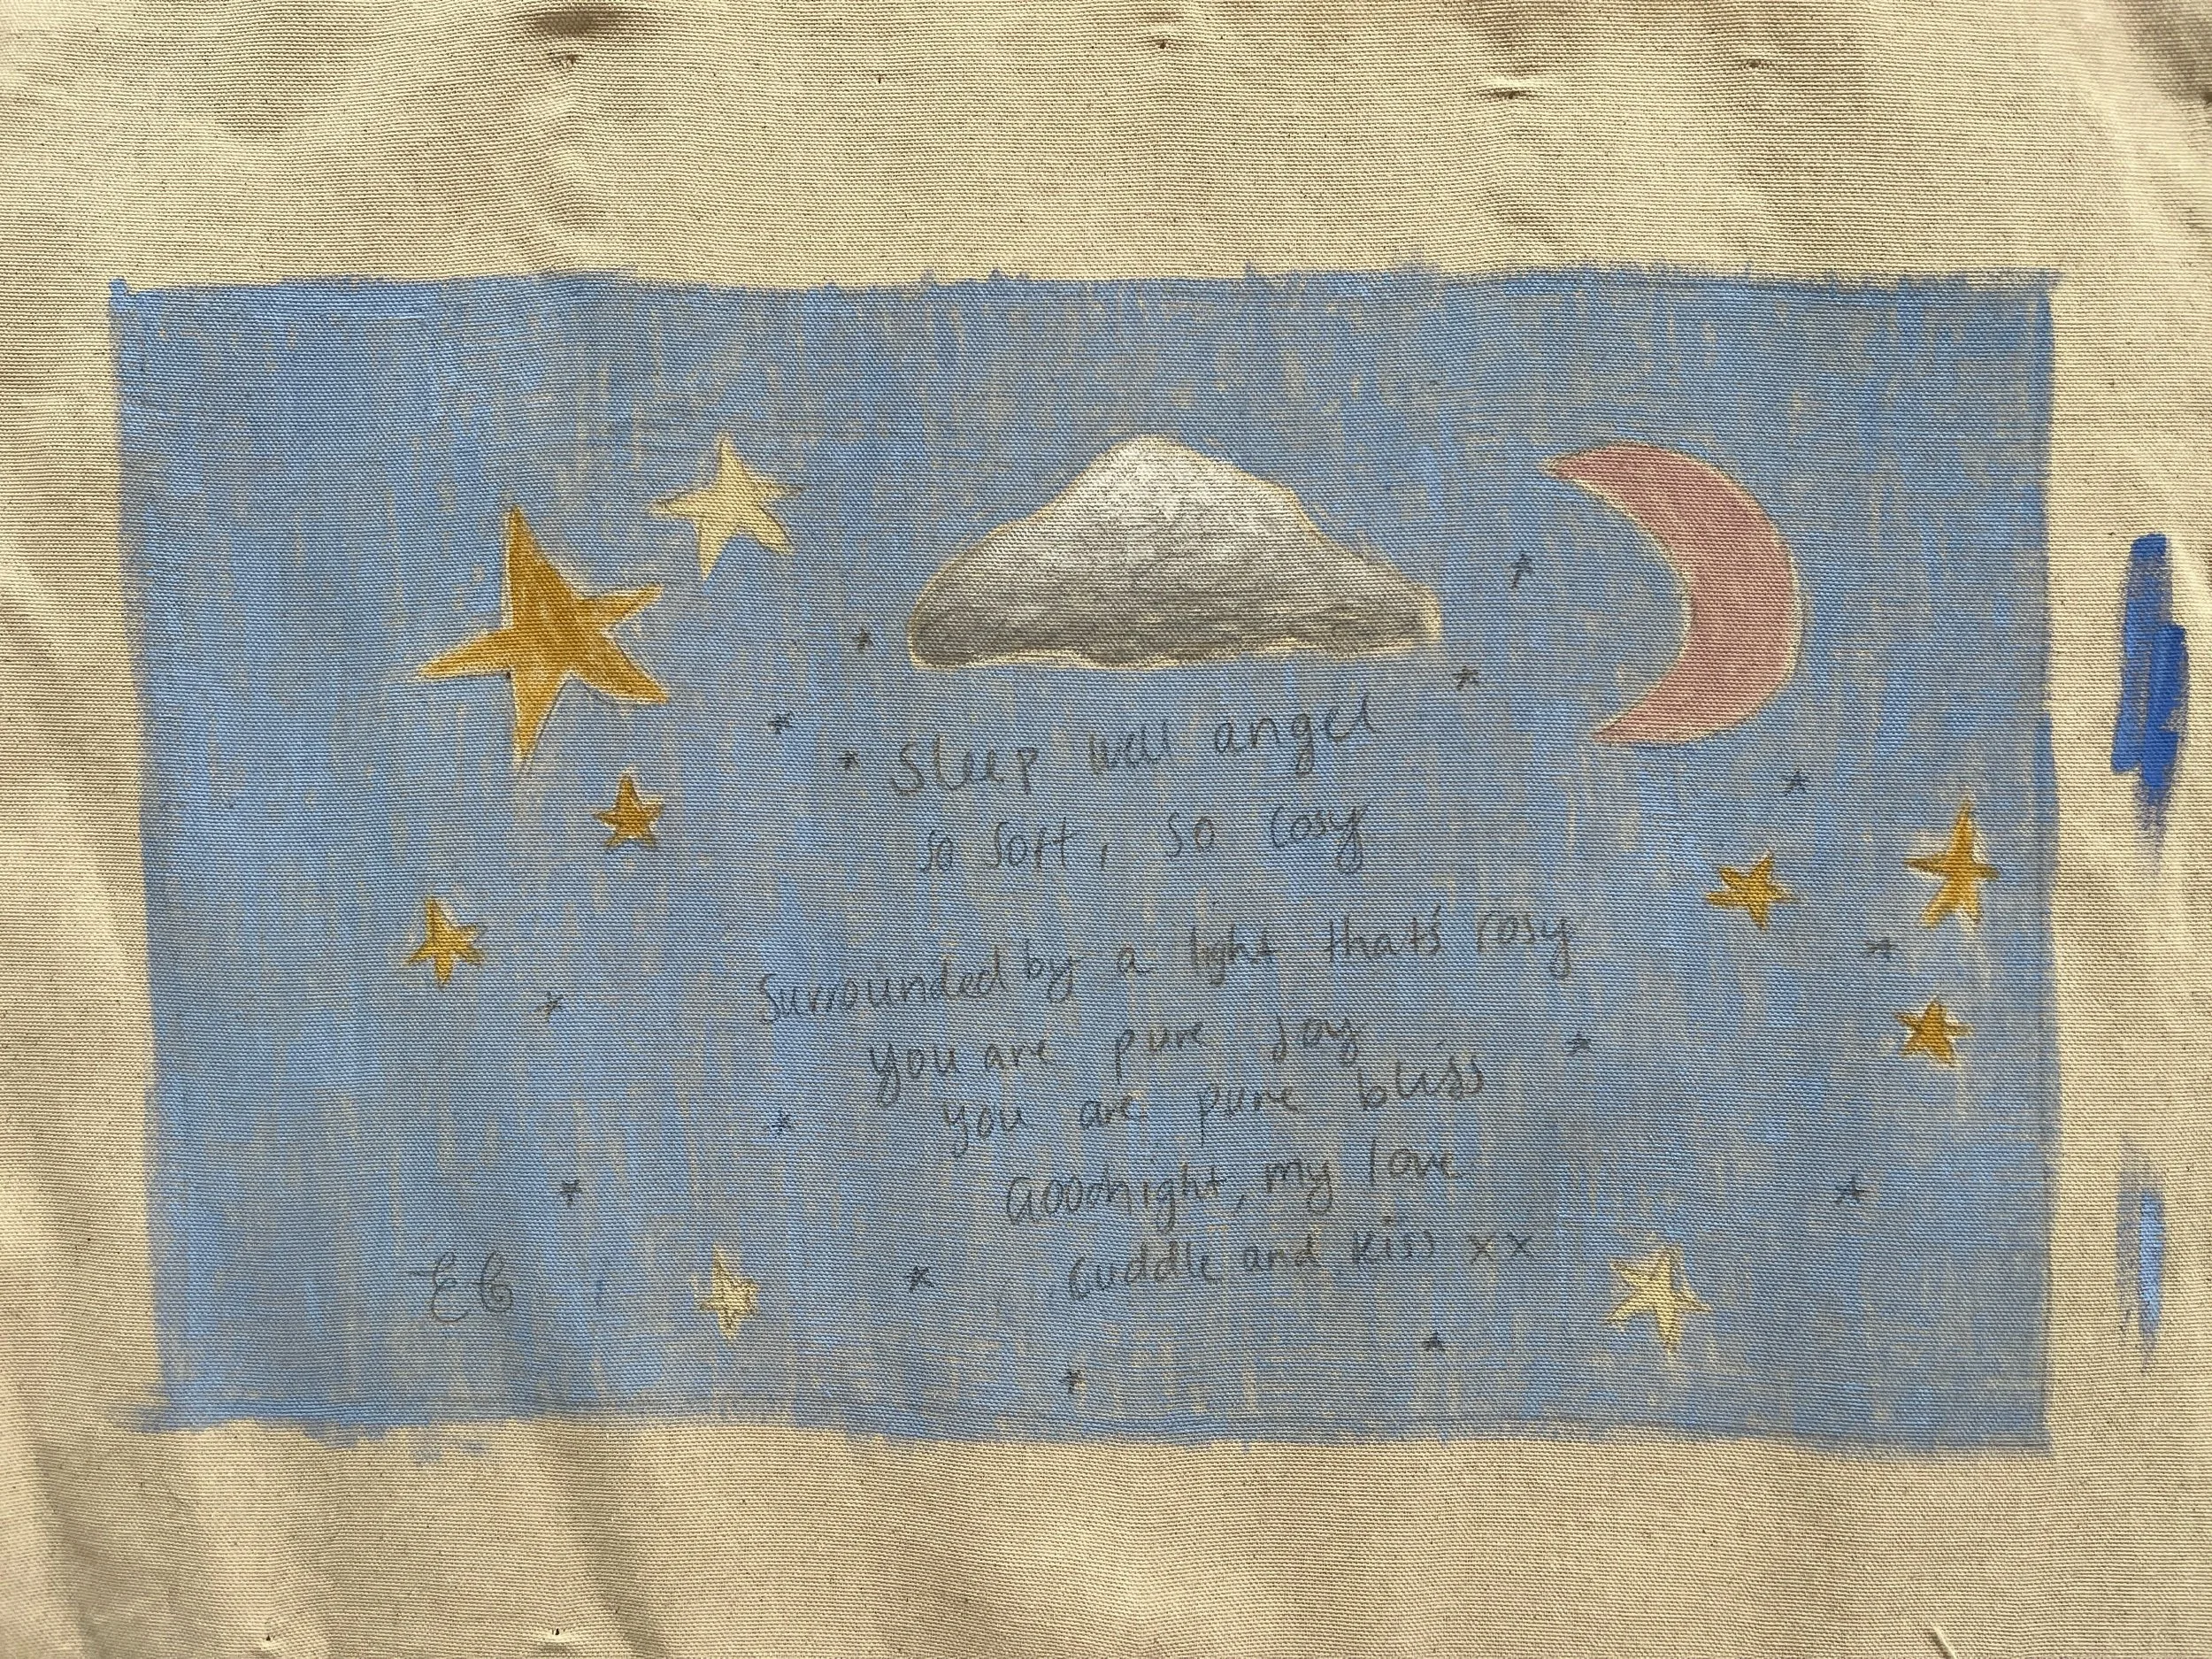 Sleep well angel
so soft, so cosy
Surrounded by a light that's rosy
you are pure Joy
you are pure bliss
Goodnight, my love
cuddle and kiss xx
EC